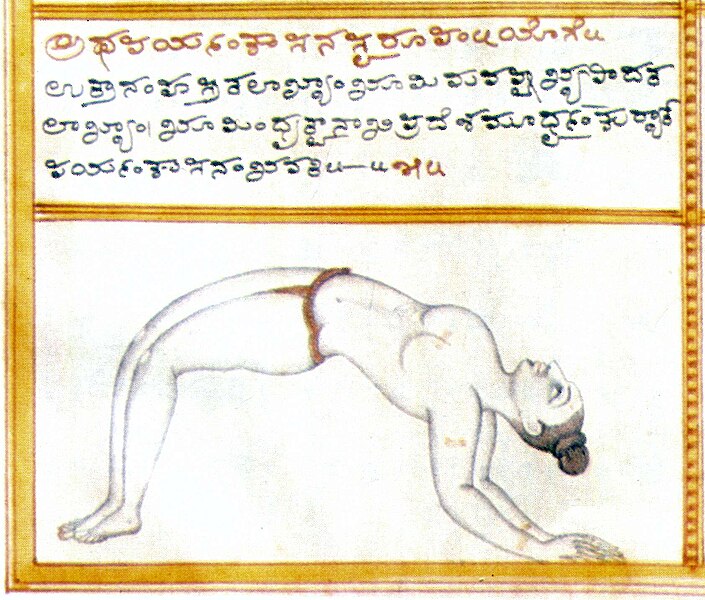 ಅಥಪರ್ಯಂಕಾಸನಸ್ವರೂಪಂ॥ಯೋಗೇ॥
ಉತ್ತಾನಂಹಸ್ತತಲಾಭ್ಯಾಂಭೂಮಿಮವಷ್ಟಭ್ಯಪಾದತ
ಲಾಭ್ಯಾಂ।ಭೂಮಿಂಧೃತ್ವಾನಾಭಿಪ್ರದೇಶಮೂರ್ಧ್ವಂಕುರ್ಯಾತ್
ಪರ್ಯಂಕಾಸನಂಭವತಿ॥—॥